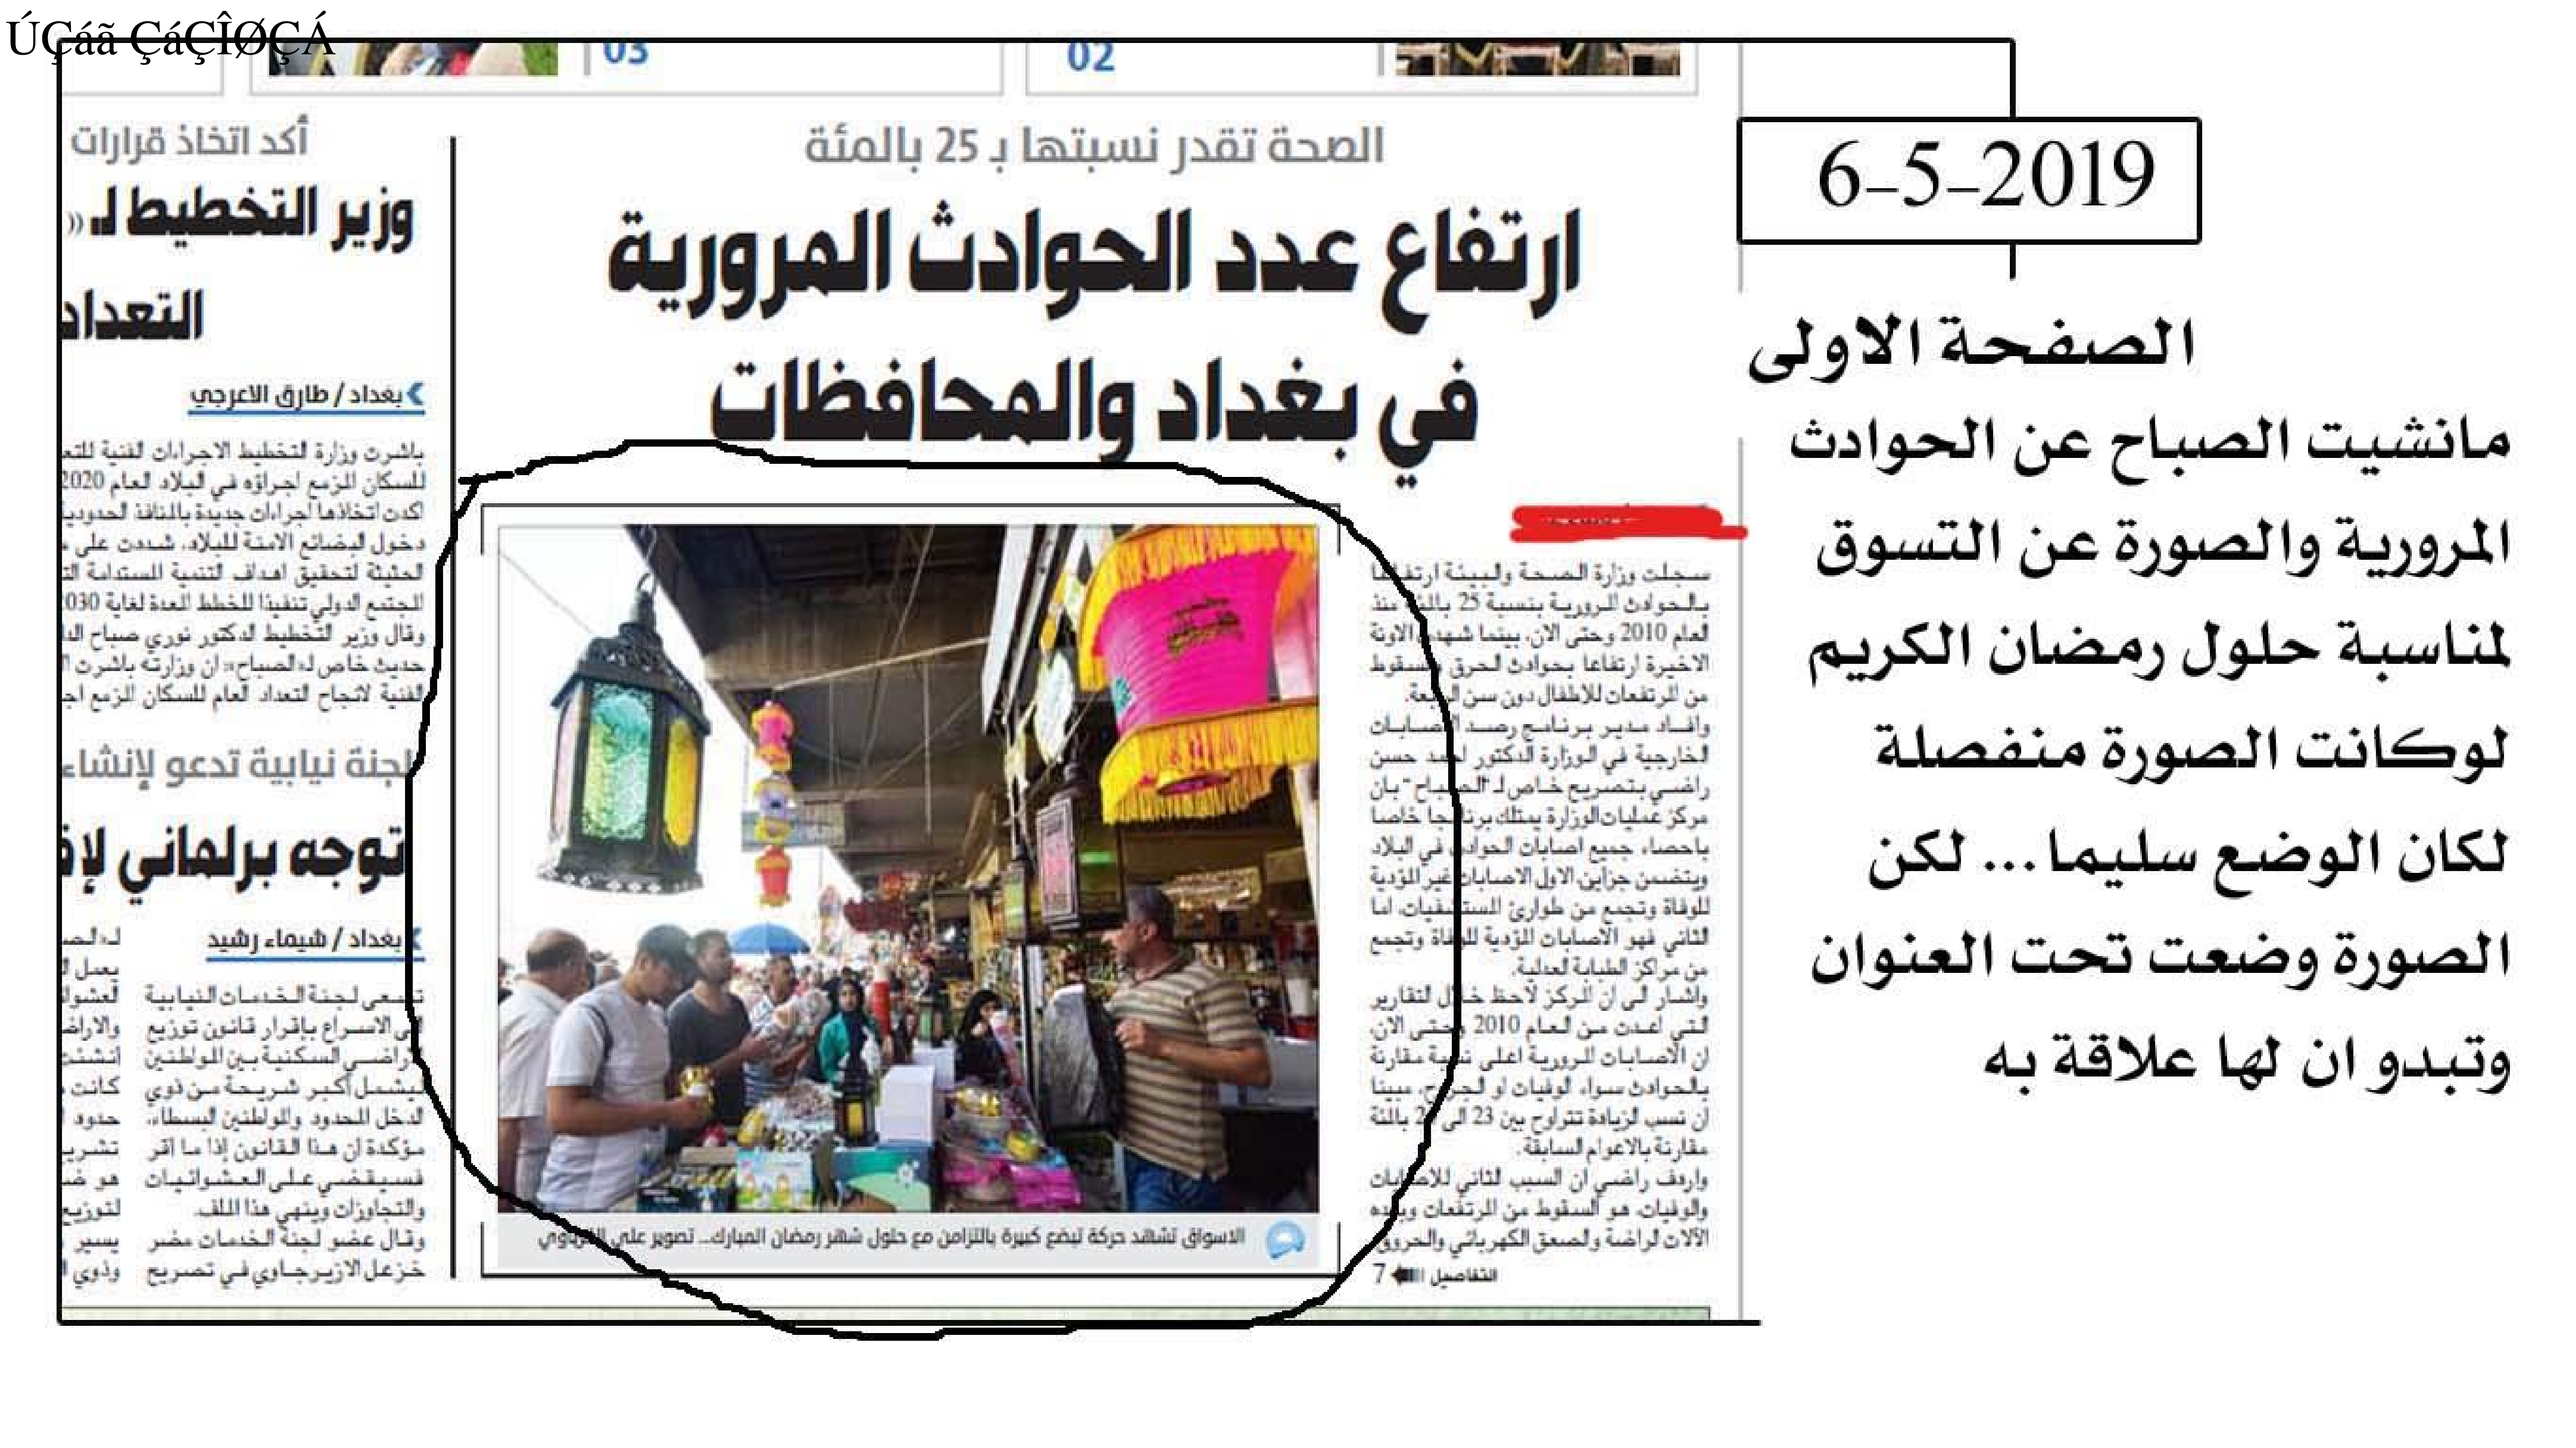 ÚÇáã ÇáÇÎØÇÁ
03
02
6-5-2019
الصفحة الاولى
مانشيت الصباح عن الحوادث
المرورية والصورة عن التسوق
لمناسبة حلول رمضان الكريم
لوكانت الصورة منفصلة
لكان الوضع سليما... لكن
الصورة وضعت تحت العنوان
وتبدو ان لها علاقة به
الصحة تقدر نسبتها بـ 25 بالمئة
ارتفاع عدد الحوادث المرورية
في بغداد والمحافظات
سجلت وزارة الصحة والبيئة ارتفاعا
بالحوادث المرورية بنسبة 25 بالمئة منذ
العام 2010 وحتى الان، بينما شهدت الاونة
الاخيرة ارتفاعا بحوادث الحرق والسقوط
من المرتفعات للاطفال دون سن الرابعة.
وافاد مدير برنامج رصد الاصابات
الخارجية في الوزارة الدكتور احمد حسن
راضي بتصريح خاص لـ"الصباح" بان
مركز عمليات الوزارة يمتلك برنامجا خاصا
باحصاء جميع اصابات الحوادث في البلاد
ويتضمن جزأين الاول الاصابات غير المؤدية
للوفاة وتجمع من طوارئ المستشفيات، اما
الثاني فهو الاصابات المؤدية للوفاة وتجمع
من مراكز الطبابة العدلية.
واشار الى ان المركز لاحظ خلال التقارير
التي اعدت من العام 2010 وحتى الان،
ان الاصابات المرورية اعلى نسبة مقارنة
بالحوادث سواء الوفيات او الجروح، مبينا
ان نسب الزيادة تتراوح بين 23 الى بالمئة
مقارنة بالاعوام السابقة.
واردف راضي ان السبب الثاني للاصابات
والوفيات، هو السقوط من المرتفعات وبعده
الآلات الراضة والصعق الكهربائي والحروق.
التفاصيل 7
الاسواق تشهد حركة تبضع كبيرة بالتزامن مع حلول شهر رمضان المبارك... تصوير علي
أكد اتخاذ قرارات
وزير التخطيط لـ «
التعداد
بغداد / طارق الاعرجي
باشرت وزارة التخطيط الاجراءات الفنية للتعـ
للسكان المزمع اجراؤه في البلاد العام 2020
اكدت اتخاذها اجراءات جديدة بالمنافذ الحدودية
دخول البضائع الامنة للبلاد، شددت على
الحثيثة لتحقيق اهداف التنمية المستدامة
المجتمع الدولي تنفيذا للخطط المعدة لغاية 030
وقال وزير التخطيط الدكتور نوري صباح
حديث خاص لـ«الصباح»: ان وزارته باشرت
الفنية لانجاح التعداد العام للسكان المزمع
لجنة نيابية تدعو لإنشاء
توجه برلماني
بغداد / شيماء رشيد
تسعى لجنة الخدمات النيابية
الى الاسراع بإقرار قانون توزيع
الاراضي السكنية بين المواطنين
ليشمل أكبر شريحة من ذوي
الدخل المحدود والمواطنين البسطاء،
مؤكدة ان هذا القانون إذا ما اقر
فسيقضي على العشوائيات
والتجاوزات وينهي هذا الملف.
وقال عضو لجنة الخدمات مضر
خزعل الازيرجاوي في تصريح
يعمل
أنشئت
كانت
حدود
تشريـ
هو
لتوزيع
يسير
وذوي